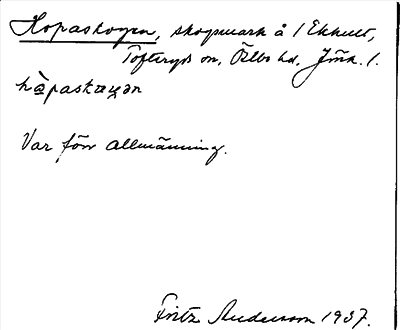 Hopaskogen, skogsmark å 1 Ekhult,
Tofteryds sn, Östbo hd. Jönk. l.
hò̱paskɷɣən
Var förr allmänning.
Fritz Anderson 1937.